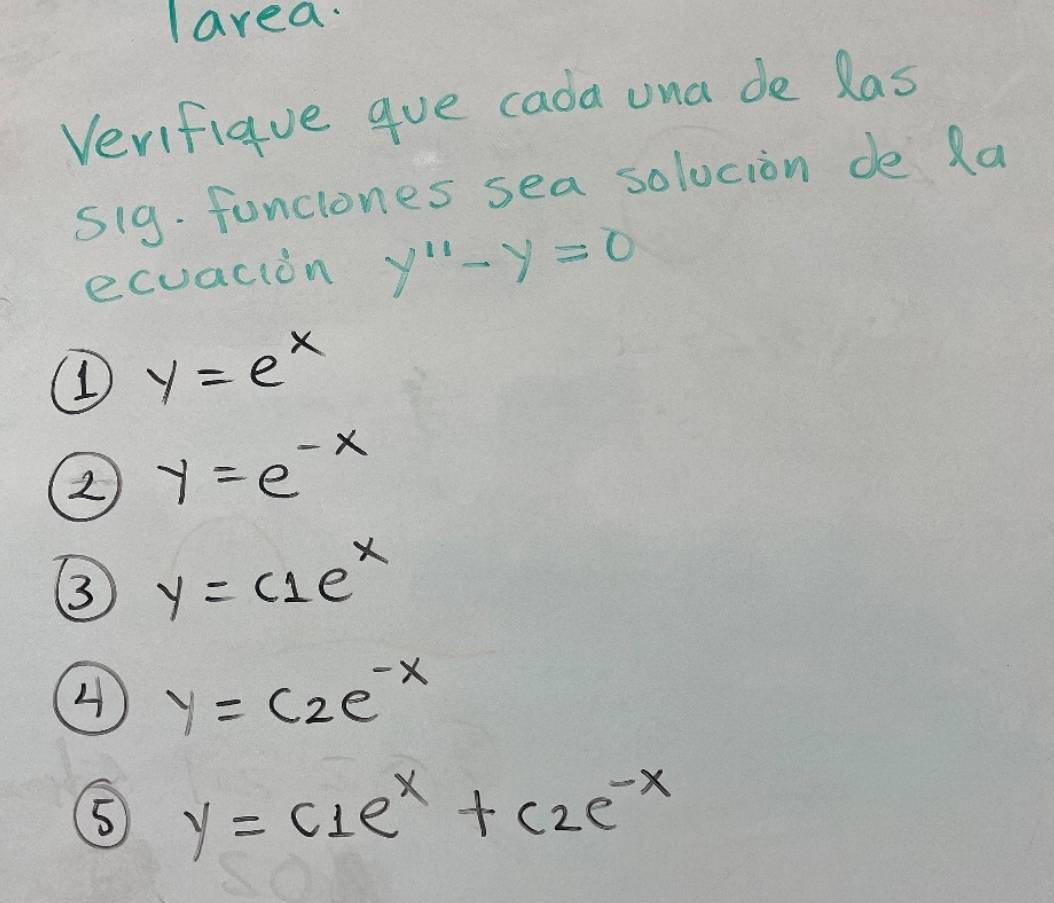 Tarea.
Verifique que cada una de las
sig. funciones sea solución de la
ecuación y'' - y = 0
① y = e^x
② y = e^-x
③ y = c1e^x
④ y = c2e^-x
⑤ y = c1e^x + c2e^-x